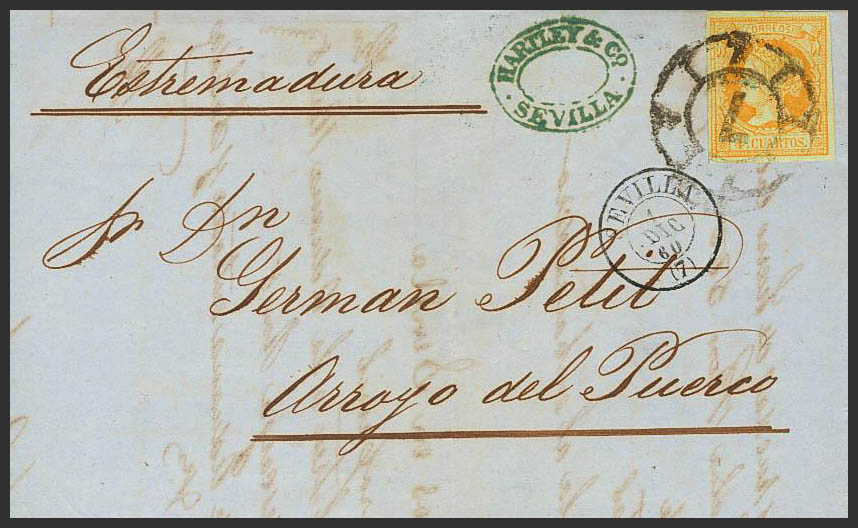 Estremadura
HARTLEY & Co.
SEVILLA
CORREOS
4 CUARTOS.
7
SEVILLA
1
DIC
60
(7)
Sr Dn
German Petit
Arroyo del Puerco